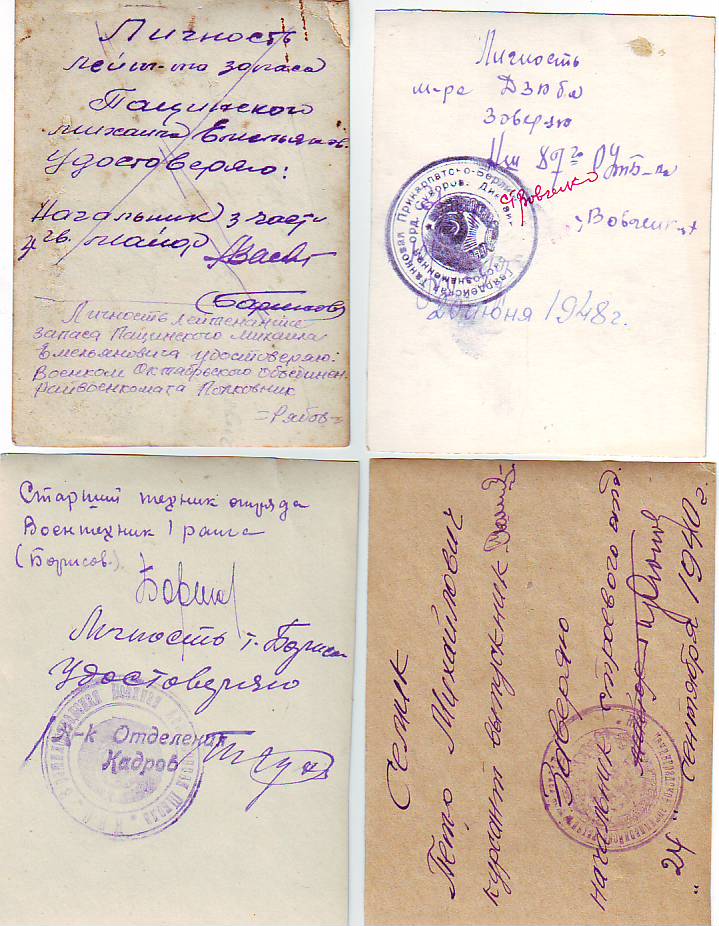 Личность
лейт-та запаса
Пащинского
Михаила Емельянов.
Удостоверяю:
Начальник 3 части
гв. майор
(Баринов)
Личность лейтенанта
запаса Пащинского Михаила
Емельяновича удостоверяю:
Военком Октябрьского объединен.
Райвоенкомата Полковник
=Рябов=
Личность
м-ра Дзюба
Заверяю
87
Вовченко
"Вовченко"
Гвардейская Танковая Прикарпатско-Берл
Краснознаменная орд. Суворов. Дивизи
20 июня 1948г.
Старший техник отряда
Воентехник 1 ранга
(Борисов.)
Личность т. Борисо
Удостоверяю
Н-к Отделения
Кадров
Семик
Петро Михайлович
курсант выпускник
Заверяю
начальник строевого отд.
майор
"24" Сентября 1940 г.